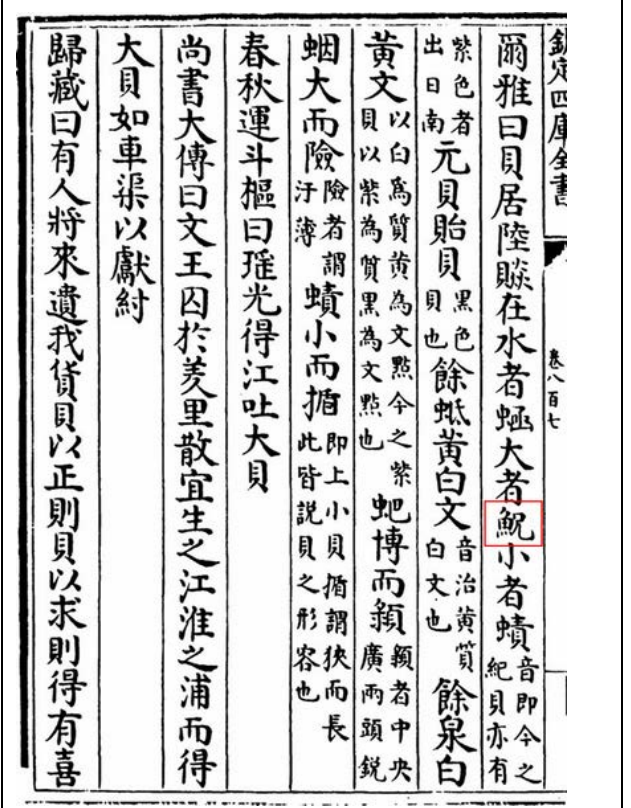 欽定四庫全書 卷八百七
爾雅曰貝居陸贆在水者蜬大者魧小者䗩音即今之紀貝亦有
紫色者出日南元貝貽貝黑色貝也餘蚳黄白文音治黄質白文也餘泉白
黄文以白為質黄為文點今之紫貝以紫為質黑為文點也蚆博而頯頯者中央廣兩頭鋭
蜠大而險險者謂汙薄䗩小而楕即上小貝楕謂狹而長此皆説貝之形容也
春秋運斗樞曰瑶光得江吐大貝
尚書大傳曰文王囚於羑里散宜生之江淮之浦而得
大貝如車渠以獻紂
歸藏曰有人將來遺我貨貝以正則貝以求則得有喜